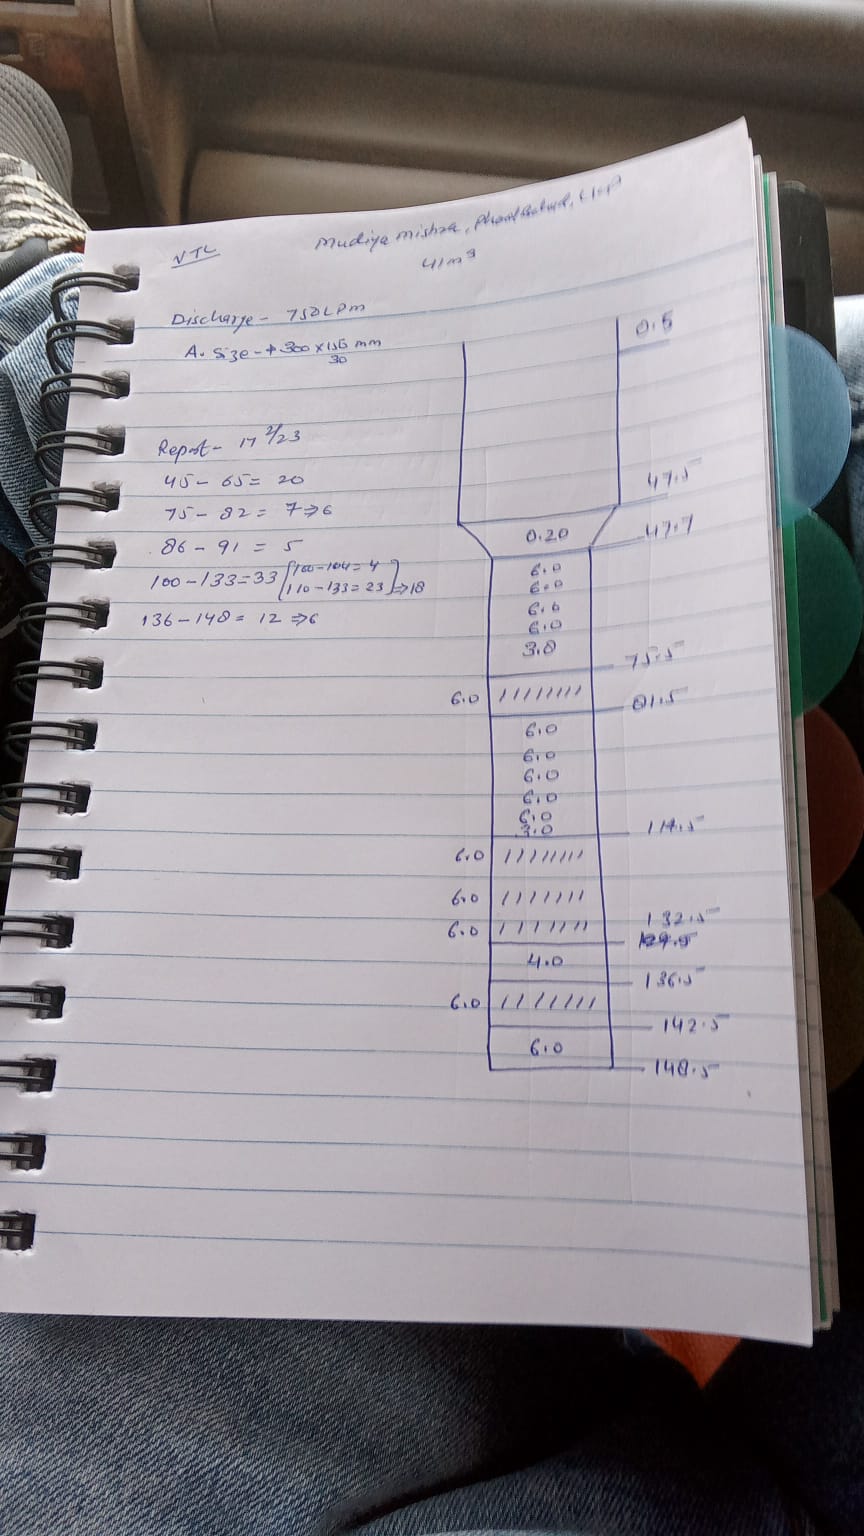 NTL
Mudiya mishra,
41m3
Discharge - 750 LPM
A. Size - 300 x 150 mm
30
Report - 17 2/23
45 - 65 = 20
75 - 82 = 7 ⇒ 6
86 - 91 = 5
100 - 133 = 33 [100 - 104 = 4
110 - 133 = 23] ⇒ 18
136 - 148 = 12 ⇒ 6
0.5
47.5
0.20
47.7
6.0
6.0
6.0
6.0
3.0
75.5
6.0
81.5
6.0
6.0
6.0
6.0
6.0
3.0
114.5
6.0
6.0
6.0
132.5
4.0
136.5
6.0
142.5
6.0
148.5